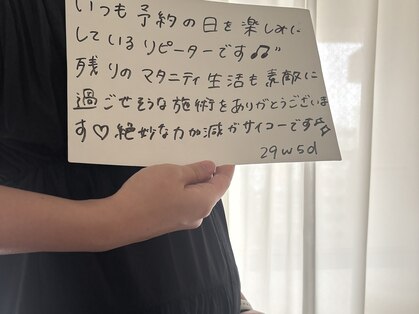 いつも予約の日を楽しみに
しているリピーターです♫♪"
残りのマタニティ生活も素敵に
過ごせそうな施術をありがとうございま
す♡絶妙な力加減がサイコーです✨
29w5d